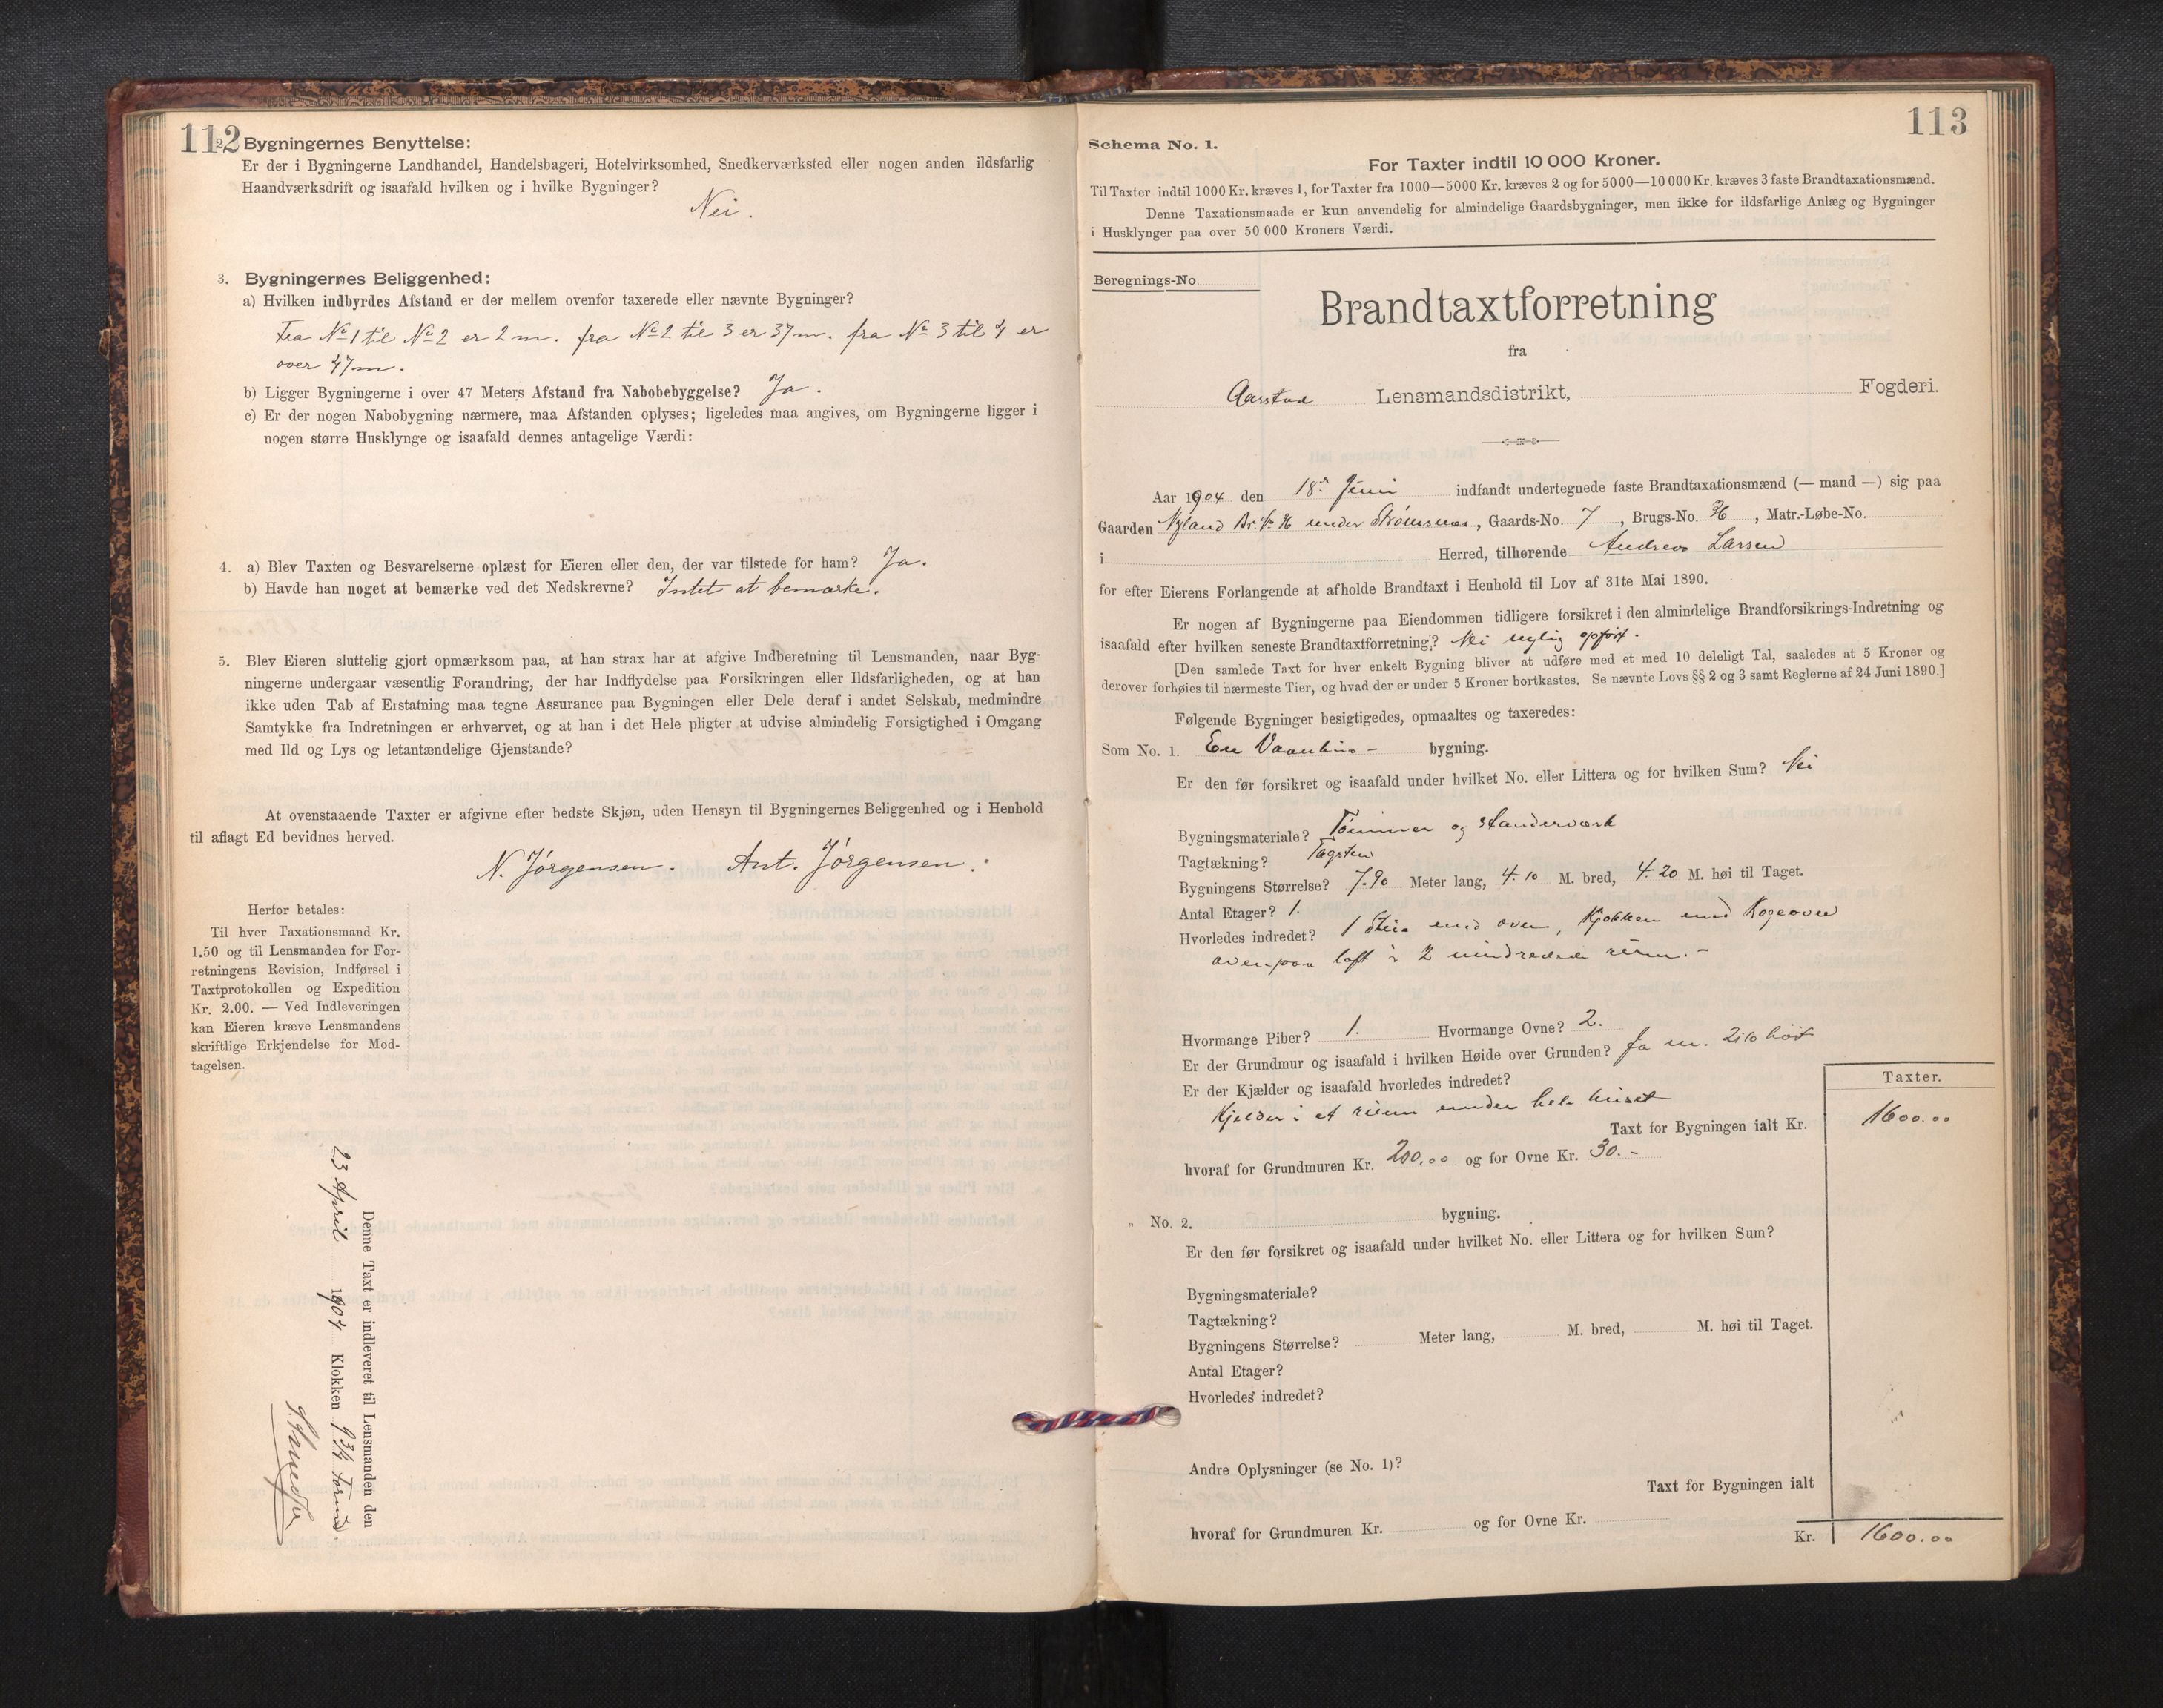 112
2. Bygningernes Benyttelse:
Er der i Bygningerne Landhandel, Handelsbageri, Hotelvirksomhed, Snedkerværksted eller nogen anden ildsfarlig
Haandværksdrift og isaafald hvilken og i hvilke Bygninger?
Nei.
3. Bygningernes Beliggenhed:
a) Hvilken indbyrdes Afstand er der mellem ovenfor taxerede eller nævnte Bygninger?
Fra No 1 til No 2 er 2 m. fra No 2 til 3 er 37 m. fra No 3 til 4 er
over 47 m.
b) Ligger Bygningerne i over 47 Meters Afstand fra Nabobebyggelse? Ja.
c) Er der nogen Nabobygning nærmere, maa Afstanden oplyses; ligeledes maa angives, om Bygningerne ligger i
nogen større Husklynge og isaafald dennes antagelige Værdi:
4. a) Blev Taxten og Besvarelserne oplæst for Eieren eller den, der var tilstede for ham? Ja.
b) Havde han noget at bemærke ved det Nedskrevne? Intet at bemærke.
5. Blev Eieren sluttelig gjort opmærksom paa, at han strax har at afgive Indberetning til Lensmanden, naar Byg-
ningerne undergaar væsentlig Forandring, der har Indflydelse paa Forsikringen eller Ildsfarligheden, og at han
ikke uden Tab af Erstatning maa tegne Assurance paa Bygningen eller Dele deraf i andet Selskab, medmindre
Samtykke fra Indretningen er erhvervet, og at han i det Hele pligter at udvise almindelig Forsigtighed i Omgang
med Ild og Lys og letantændelige Gjenstande?
At ovenstaaende Taxter er afgivne efter bedste Skjøn, uden Hensyn til Bygningernes Beliggenhed og i Henhold
til aflagt Ed bevidnes herved.
N. Jørgensen. Ant. Jørgensen.
Herfor betales:
Til hver Taxationsmand Kr.
1.50 og til Lensmanden for For-
retningens Revision, Indførsel i
Taxtprotokollen og Expedition
Kr. 2.00. — Ved Indleveringen
kan Eieren kræve Lensmandens
skriftlige Erkjendelse for Mod-
tagelsen.
Denne Taxt er indleveret til Lensmanden den
23 April 1904 Klokken 9 3/4 Form.
113
Schema No. 1.
For Taxter indtil 10 000 Kroner.
Til Taxter indtil 1000 Kr. kræves 1, for Taxter fra 1000—5000 Kr. kræves 2 og for 5000—10 000 Kr. kræves 3 faste Brandtaxationsmænd.
Denne Taxationsmaade er kun anvendelig for almindelige Gaardsbygninger, men ikke for ildsfarlige Anlæg og Bygninger
i Husklynger paa over 50 000 Kroners Værdi.
Beregnings-No.
Brandtaxtforretning
fra
Aarstad Lensmandsdistrikt, Fogderi.
Aar 1904 den 18de Juni indfandt undertegnede faste Brandtaxationsmænd (— mand —) sig paa
Gaarden Nyland Br. No 36 under Strømsnes, Gaards-No. 7, Brugs-No. 36, Matr.-Løbe-No.
i Herred, tilhørende Andreas Larsen
for efter Eierens Forlangende at afholde Brandtaxt i Henhold til Lov af 31te Mai 1890.
Er nogen af Bygningerne paa Eiendommen tidligere forsikret i den almindelige Brandforsikrings-Indretning og
isaafald efter hvilken seneste Brandtaxtforretning? Nei nylig opført.
[Den samlede Taxt for hver enkelt Bygning bliver at udføre med et med 10 deleligt Tal, saaledes at 5 Kroner og
derover forhøies til nærmeste Tier, og hvad der er under 5 Kroner bortkastes. Se nævnte Lovs §§ 2 og 3 samt Reglerne af 24 Juni 1890.]
Følgende Bygninger besigtigedes, opmaaltes og taxeredes:
Som No. 1. En Vaanhus- bygning.
Er den før forsikret og isaafald under hvilket No. eller Littera og for hvilken Sum? Nei
Bygningsmateriale? Tømmer og standerværk
Tagtækning? Tagsten
Bygningens Størrelse? 7.90 Meter lang, 4.10 M. bred, 4.20 M. høi til Taget.
Antal Etager? 1.
Hvorledes indredet? 1 Stue med oven, Kjøkken med Kogeoven
ovenpaa loft i 2 uindredede rum.-
Hvormange Piber? 1. Hvormange Ovne? 2.
Er der Grundmur og isaafald i hvilken Høide over Grunden? Ja m. 2,10 høit
Er der Kjælder og isaafald hvorledes indredet?
Kjelder i et rum under hele huset
Taxter.
Taxt for Bygningen ialt Kr. 1600.00
hvoraf for Grundmuren Kr. 200.00 og for Ovne Kr. 30.-
„ No. 2. bygning.
Er den før forsikret og isaafald under hvilket No. eller Littera og for hvilken Sum?
Bygningsmateriale?
Tagtækning?
Bygningens Størrelse? Meter lang, M. bred, M. høi til Taget.
Antal Etager?
Hvorledes indredet?
Andre Oplysninger (se No. 1)?
Taxt for Bygningen ialt
hvoraf for Grundmuren Kr. og for Ovne Kr.
Kr. 1600.00